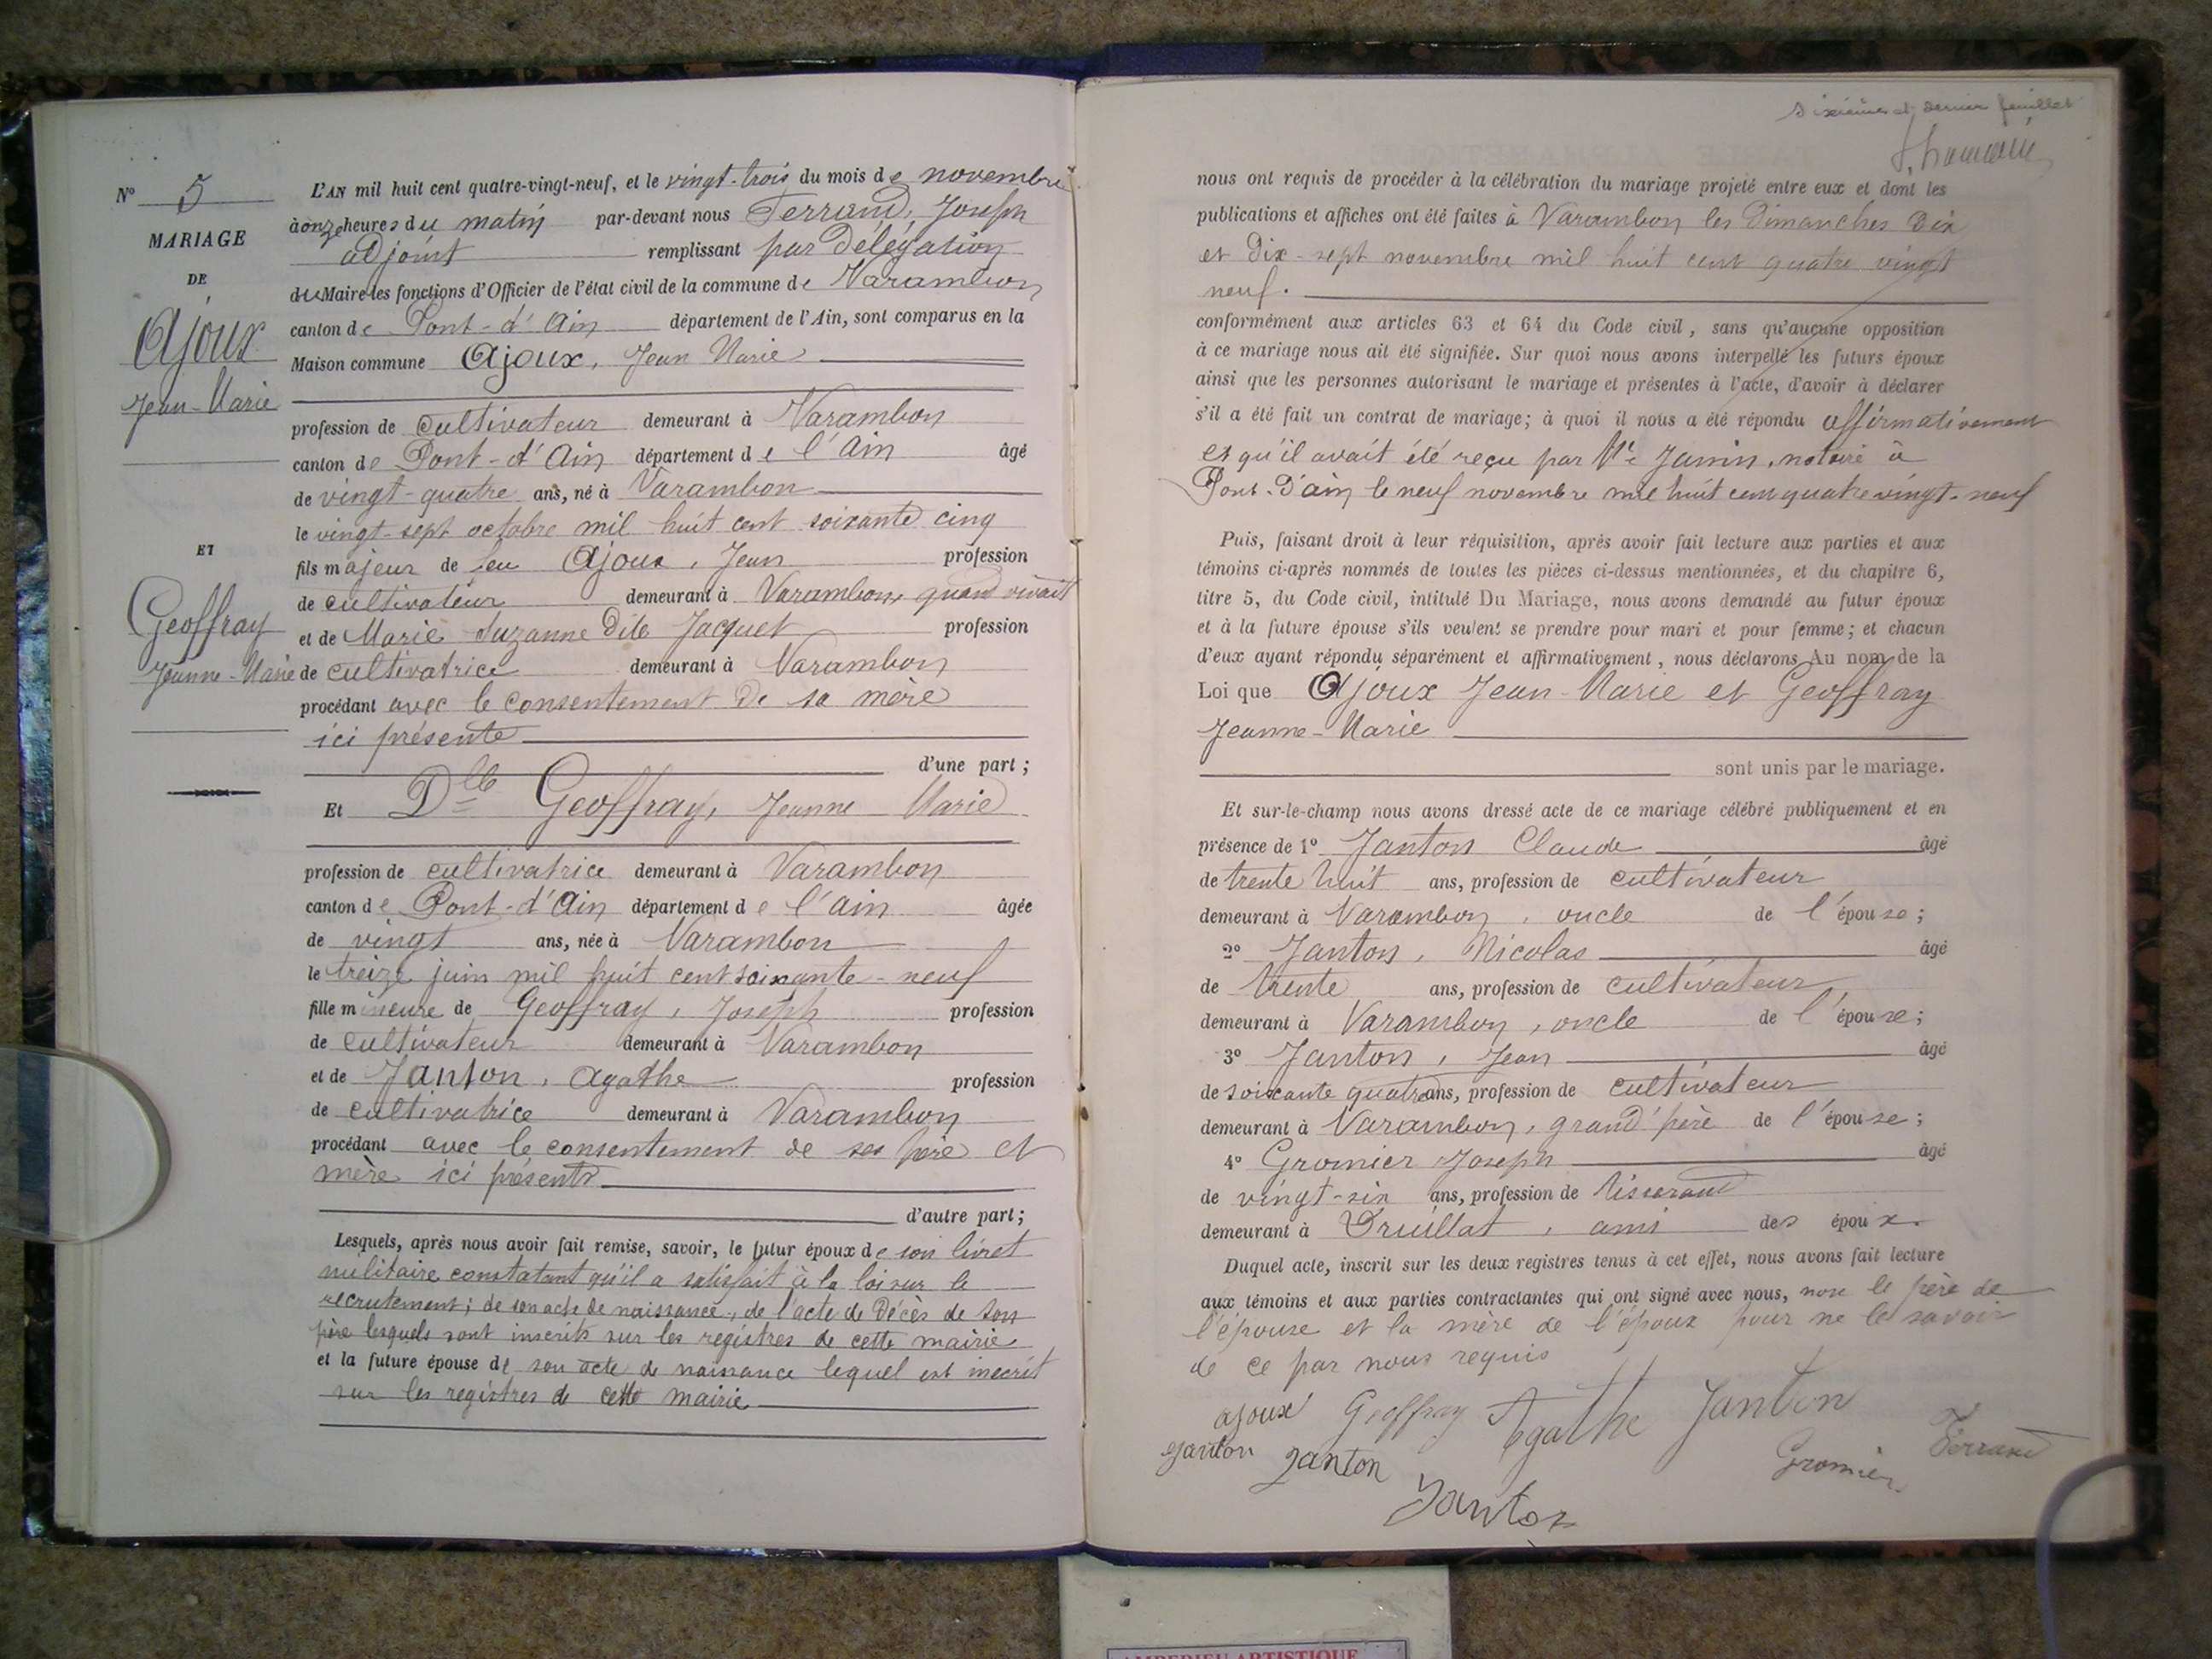 N° 5
MARIAGE
DE
Ajoux
Jean-Marie
ET
Geoffray
Jeanne-Marie
L'AN mil huit cent quatre-vingt-neuf, et le vingt-trois du mois de novembre
à onze heures du matin par-devant nous Ferrand, Joseph
adjoint remplissant par Délégation
du Maire les fonctions d'Officier de l'état civil de la commune de Varambon
canton de Pont-d'Ain département de l'Ain, sont comparus en la
Maison commune Ajoux, Jean Marie
profession de cultivateur demeurant à Varambon
canton de Pont-d'Ain département de l'Ain âgé
de vingt-quatre ans, né à Varambon
le vingt-sept octobre mil huit cent soixante cinq
fils majeur de feu Ajoux, Jean profession
de cultivateur demeurant à Varambon, quand vivait
et de Marie Suzanne Dite Jacquet profession
de cultivatrice demeurant à Varambon
procédant avec le consentement de sa mère
ici présente
d'une part;
Et Dlle Geoffray, Jeanne Marie
profession de cultivatrice demeurant à Varambon
canton de Pont-d'Ain département de l'Ain âgée
de vingt ans, née à Varambon
le treize juin mil huit cent soixante-neuf
fille mineure de Geoffray, Joseph profession
de cultivateur demeurant à Varambon
et de Janton, Agathe profession
de cultivatrice demeurant à Varambon
procédant avec le consentement de ses père et
mère ici présents
d'autre part;
Lesquels, après nous avoir fait remise, savoir, le futur époux de son livret
militaire constatant qu'il a satisfait à la loi sur le
recrutement; de son acte de naissance, de l'acte de Décès de son
père lesquels sont inscrits sur les registres de cette mairie
et la future épouse de son acte de naissance lequel est inscrit
sur les registres de cette mairie
Dixième et dernier feuillet
nous ont requis de procéder à la célébration du mariage projeté entre eux et dont les
publications et affiches ont été faites à Varambon les Dimanches Dix
et Dix-sept novembre mil huit cent quatre vingt
neuf.
conformément aux articles 63 et 64 du Code civil, sans qu'aucune opposition
à ce mariage nous ait été signifiée. Sur quoi nous avons interpellé les futurs époux
ainsi que les personnes autorisant le mariage et présentes à l'acte, d'avoir à déclarer
s'il a été fait un contrat de mariage; à quoi il nous a été répondu affirmativement
et qu'il avait été reçu par Me Janin, notaire à
Pont-d'Ain le neuf novembre mil huit cent quatre vingt-neuf
Puis, faisant droit à leur réquisition, après avoir fait lecture aux parties et aux
témoins ci-après nommés de toutes les pièces ci-dessus mentionnées, et du chapitre 6,
titre 5, du Code civil, intitulé Du Mariage, nous avons demandé au futur époux
et à la future épouse s'ils veulent se prendre pour mari et pour femme; et chacun
d'eux ayant répondu séparément et affirmativement, nous déclarons Au nom de la
Loi que Ajoux Jean-Marie et Geoffray
Jeanne-Marie
sont unis par le mariage.
Et sur-le-champ nous avons dressé acte de ce mariage célébré publiquement et en
présence de 1° Janton Claude âgé
de trente huit ans, profession de cultivateur
demeurant à Varambon, oncle de l'épouse;
2° Janton, Nicolas âgé
de trente ans, profession de cultivateur
demeurant à Varambon, oncle de l'épouse;
3° Janton, Jean âgé
de soixante quatre ans, profession de cultivateur
demeurant à Varambon, grand'père de l'épouse;
4° Gromier Joseph âgé
de vingt-six ans, profession de tisserand
demeurant à Druillat, ami des époux.
Duquel acte, inscrit sur les deux registres tenus à cet effet, nous avons fait lecture
aux témoins et aux parties contractantes qui ont signé avec nous, non le père de
l'épouse et la mère de l'époux pour ne le savoir
de ce par nous requis
ajoux Geoffray Agathe Janton
Janton Janton Gromier Ferrand
Janton
AMBERIEU ARTISTIQUE